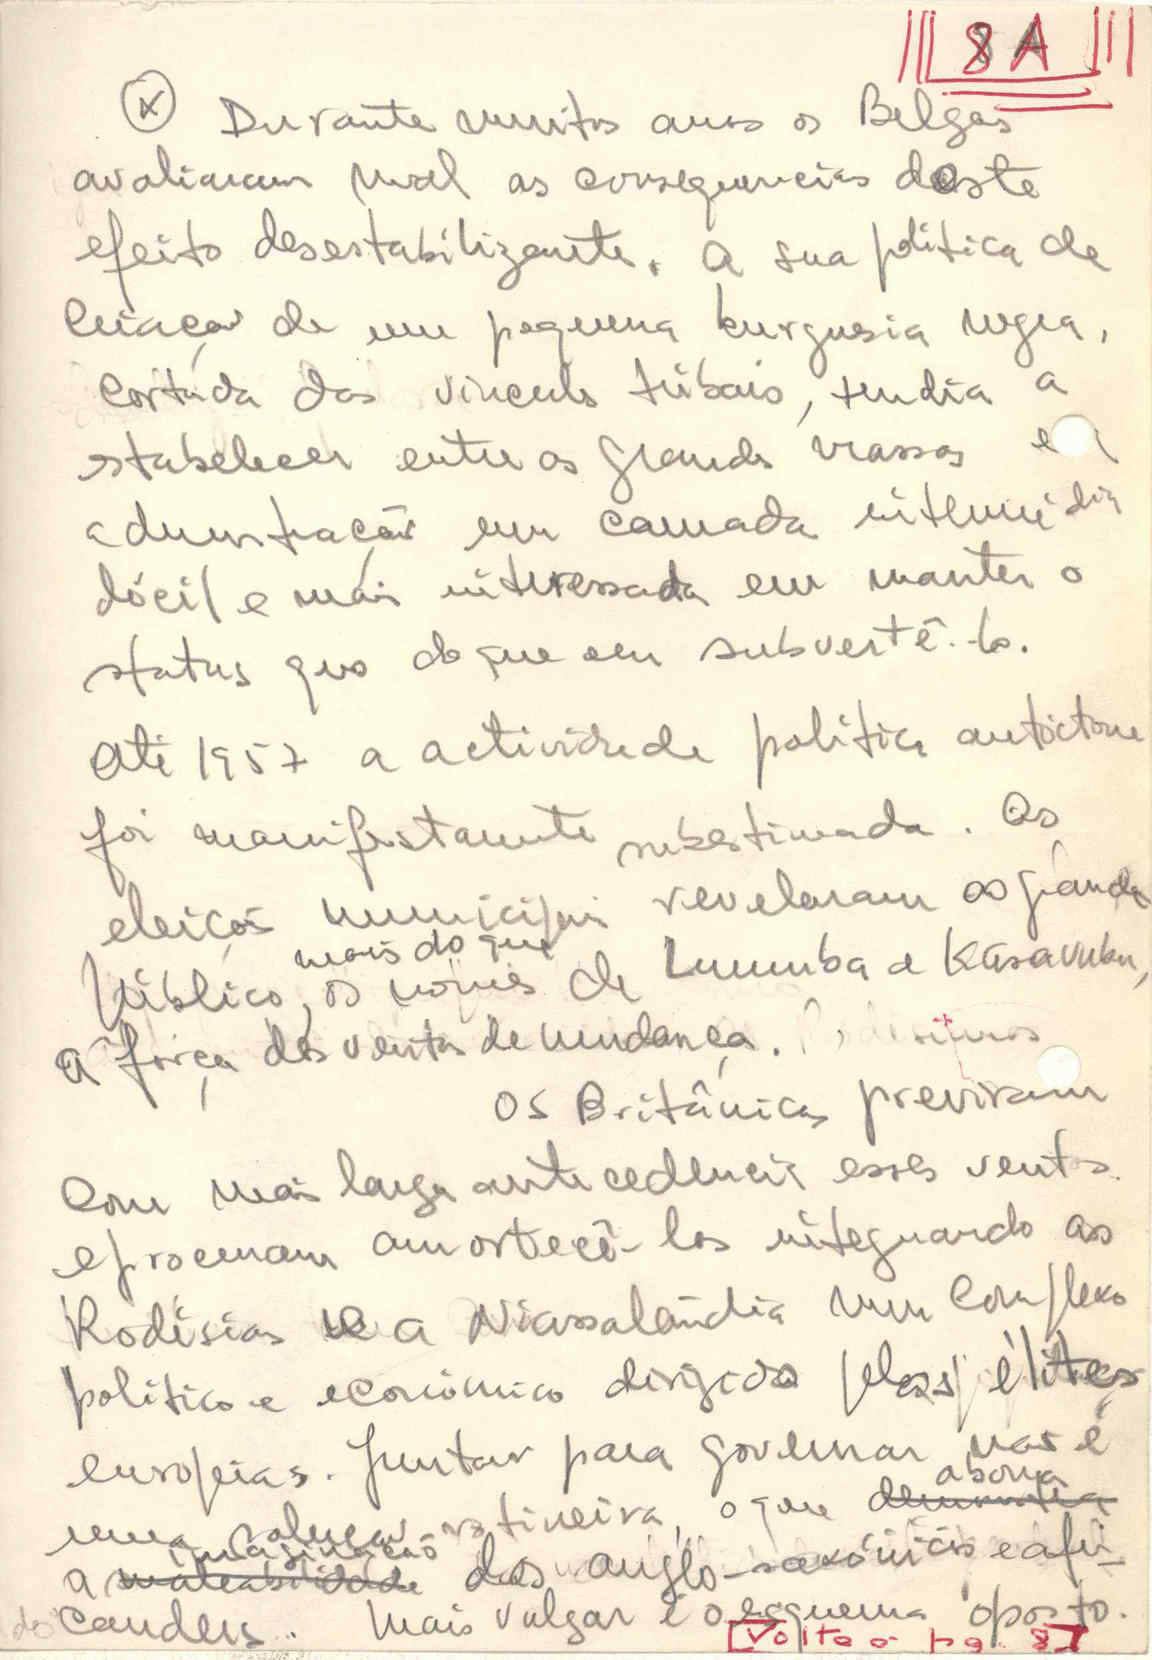 8A
Durante muitos anos os Belgas
avaliaram mal as consequencias deste
efeito desestabilizante. A sua política de
criação de uma pequena burguesia negra,
cortada dos vinculos tribais, tendia a
estabelecer entre as grandes massas e a
administração uma camada intermédia
dócil e mais interessada em manter o
status quo do que em subvertê-lo.
Até 1957 a actividade politica autóctone
foi manifestamente subestimada. As
eleições municipais revelaram ao grande
mais do que
público, os nomes de Lumumba e Kasavubu,
a força dos ventos de mudança.
Os Britânicos previram
com mais larga antecedencia esses ventos
e procuraram amortecê-los integrando as
Rodésias e a Niassalândia num complexo
politico e económico dirigido pelas élites
europeias. Juntar para governar não é
abona
uma solução rotineira, o que demonstra
imaginação
a maleabilidade dos anglo-saxónicos e afri-
canders. Mais vulgar é o esquema oposto.
[Volta à pg. 8]